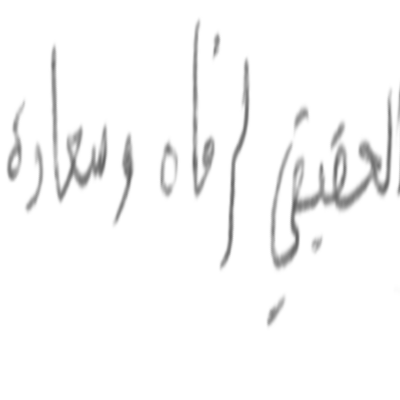 الحقيقي لرفاه وسعادة